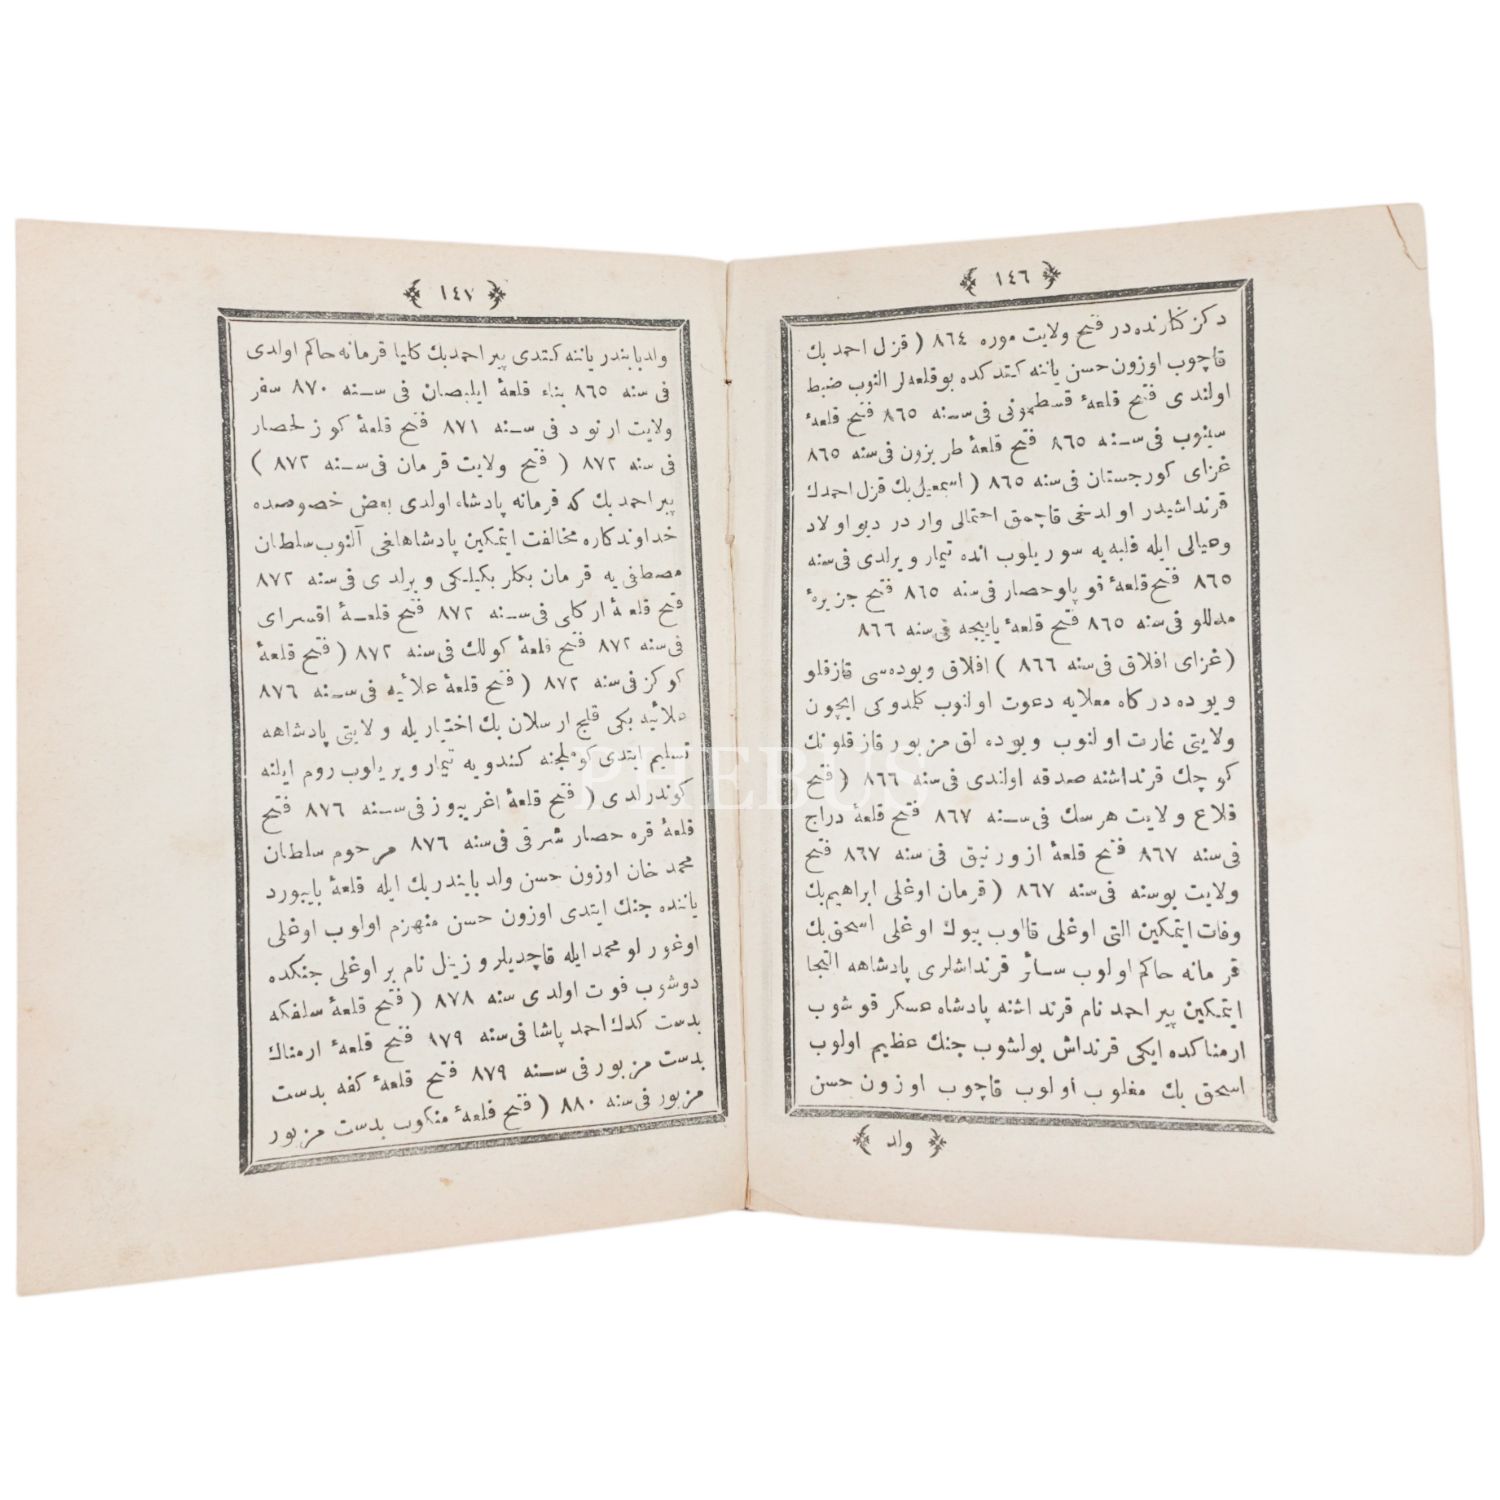 ﴿ ١٤٦ ﴾
دكز كنارنده در فتح ولايت موره ٨٦٤ ( قزل احمد بك
قاچوب اوزون حسن ياننه كتدكده بو قلعه لر النوب ضبط
اولندى فتح قلعهٔ قسطمونى فى سنه ٨٦٥ فتح قلعهٔ
سينوب فى سنه ٨٦٥ فتح قلعهٔ طربزون فى سنه ٨٦٥
غزاى كورجستان فى سنه ٨٦٥ ( اسمعيل بك قزل احمدك
قرنداشيدر اولدخى قاچمق احتمالى وار در ديو اولاد
وعيالى ايله فلبه يه سوريلوب انده تيمار ويرلدى فى سنه
٨٦٥ فتح قلعهٔ قويلوحصار فى سنه ٨٦٥ فتح جزيرهٔ
مدللو فى سنه ٨٦٥ فتح قلعهٔ يايجه فى سنه ٨٦٦
( غزاى افلاق فى سنه ٨٦٦ ) افلاق ويوده سى قازقلو
ويوده دركاه معلايه دعوت اولنوب كلمدوكى ايچون
ولايتى غارت اولنوب ويوده لق مزبور قازقلونك
كوچك قرنداشنه صدقه اولندى فى سنه ٨٦٦ ( فتح
قلاع ولايت هرسك فى سنه ٨٦٧ فتح قلعهٔ دراج
فى سنه ٨٦٧ فتح قلعهٔ ازورنيق فى سنه ٨٦٧ فتح
ولايت بوسنه فى سنه ٨٦٧ ( قرمان اوغلى ابراهيم بك
وفات ايتمكين التى اوغلى قالوب بيوك اوغلى اسحق بك
قرمانه حاكم اولوب سائر قرنداشلرى پادشاهه التجا
ايتمكين پير احمد نام قرنداشنه پادشاه عسكر قوشوب
ارمناكده ايكى قرنداش بولشوب جنك عظيم اولوب
اسحق بك مغلوب اولوب قاچوب اوزون حسن
﴿ ولد ﴾
﴿ ١٤٧ ﴾
ولد بايندر ياننه كتدى پير احمد بك كليا قرمانه حاكم اولدى
فى سنه ٨٦٥ بناء قلعهٔ ايلبصان فى سنه ٨٧٠ سفر
ولايت ارنود فى سنه ٨٧١ فتح قلعهٔ كوزلحصار
فى سنه ٨٧٢ ( فتح ولايت قرمان فى سنه ٨٧٢ )
پير احمد بك كه قرمانه پادشاه اولدى بعض خصوصده
خداوندكاره مخالفت ايتمكين پادشاهلغى آلنوب سلطان
مصطفى يه قرمان بكلر بكيلكى ويرلدى فى سنه ٨٧٢
فتح قلعهٔ اركلى فى سنه ٨٧٢ فتح قلعهٔ اقسراى
فى سنه ٨٧٢ فتح قلعهٔ كولك فى سنه ٨٧٢ ( فتح قلعهٔ
كوكز فى سنه ٨٧٢ ( فتح قلعهٔ علائيه فى سنه ٨٧٦
علائيه بكى قليج ارسلان بك اختياريله ولايتى پادشاهه
تسليم ايتدى كوملجنه كندويه تيمار ويريلوب روم ايلنه
كوندرلدى ( فتح قلعهٔ اغريبوز فى سنه ٨٧٦ فتح
قلعهٔ قره حصار شرقى فى سنه ٨٧٦ مرحوم سلطان
محمد خان اوزون حسن ولد بايندر بك ايله قلعهٔ بايبورد
ياننده جنك ايتدى اوزون حسن منهزم اولوب اوغلى
اوغورلو محمد ايله قاچديلر و زينل نام بر اوغلى جنكده
دوشوب فوت اولدى سنه ٨٧٨ ( فتح قلعهٔ سلفكه
بدست كدك احمد پاشا فى سنه ٨٧٩ فتح قلعهٔ ارمناك
بدست مزبور فى سنه ٨٧٩ فتح قلعهٔ كفه بدست
مزبور فى سنه ٨٨٠ ( فتح قلعهٔ منكوب بدست مزبور
PHEBUS